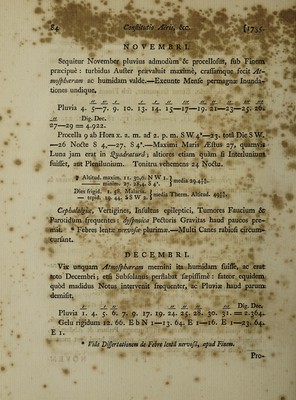 84 Constitutio Aëris, &c. [1735.
NOVEMBRI.
Sequitur November pluvius admodùm & procellosus, sub Finem
præcipuè: turbidus Auster prævaluit maximè, crassumque fecit At-
mosphæram ac humidam valdè.—Exeunte Mense permagnæ Inunda-
tiones undique.
Pluvia 4. 5—7. 9. 10. 13. 14. 15—17—19. 21—23—25. 26.
Dig. Dec.
27—29 = 4.922.
Procella 9 ab Hora x. a. m. ad 2. p. m. SW 4°—25. totâ Die SW.
—26 Nocte S 4,—27, S 4°.—Maximi Maris Æstus 27, quamvis
Luna jam erat in Quadraturâ; altiores etiam quàm si Interlunium
fuisset, aut Plenilunium. Tonitru vehemens 24 Noctu.
Altitud. maxim. 11. 30,6. NW 1.
minim. 27. 28,4. S 4°.
media 29.4
Dies frigid. 1. 38, Malacia.
tepid. 19. 44, SSW 2.
media Therm. Altitud. 40
Cephalalgiæ, Vertigines, Insultus epileptici, Tumores Faucium &
Parotidum frequentes: dyspnoica Pectoris Gravitas haud paucos pre-
mit. * Febres lentæ nervosæ plurimæ.—Multi Canes rabiosi circum-
cursant.
DECEMBRI.
Vix unquam Atmosphæram memini ita humidam fuisse, ac erat
toto Decembri; etsi Subsolanus perflabat sæpissimè: fatior equidem
quòd madidus Notus intervenit frequenter, ac Pluviæ haud parum
demisit.
Dig. Dec.
Pluvia 1. 4. 5. 6. 7. 9. 17. 19. 24. 25. 26. 30. 31. = 2.364.
Gelu rigidum 12. 66. E b N 1—13. 64. E 1—16. E 1—23. 64.
E 1.
* Vide Dissertationem de Febre lentâ nervosâ, apud Finem.
Pro-